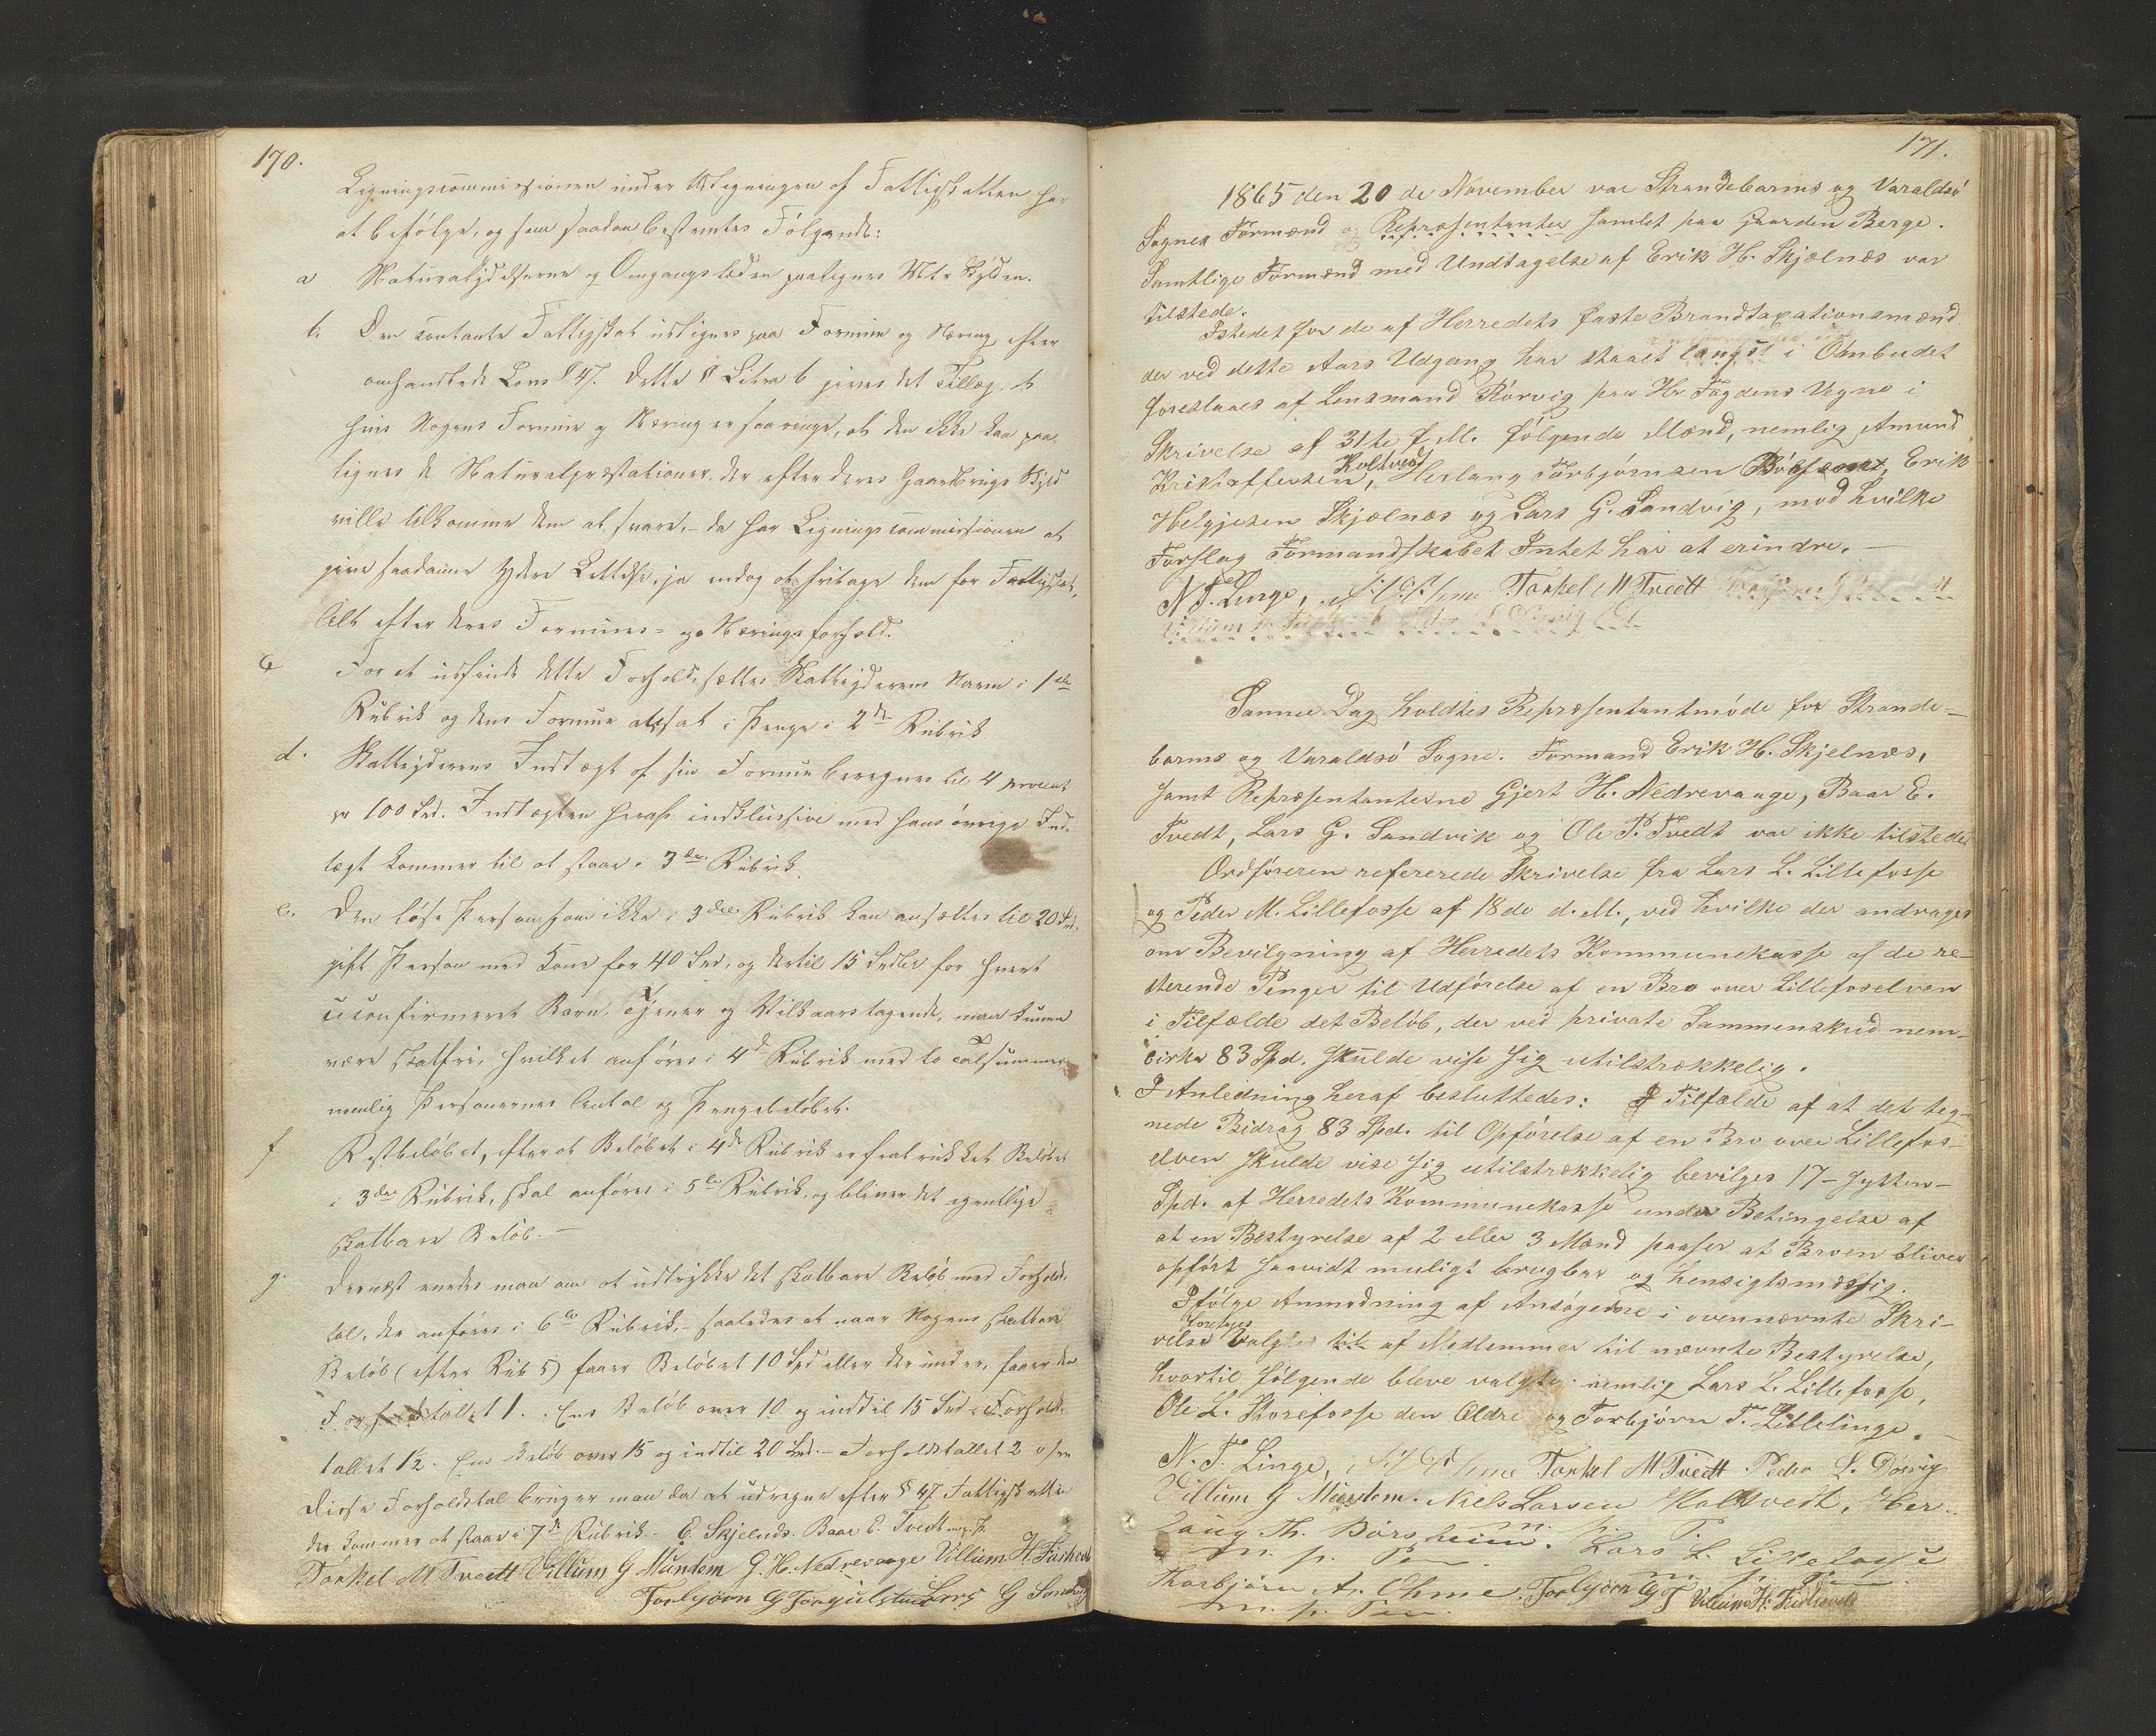 170.
Ligningscommissionen under Udligningen af Fattigskatten har
at befølge, og som saadan bestemtes Følgende:
a Naturalydelserne og Omgangslæden paalignes Mtr Skylden.
b. Den contante Fattigskat udlignes paa Formue og Næring, efter
omhandlede Lovs § 47. Dette § Litra b gives det Tillæg, at
hvis Nogens Formue og Næring er saa ringe, at den ikke kan paa-
lignes de Naturalpræstationer, der efter deres Gaardbrugs Skyld
ville tilkomme dem at svare, - da har Ligningscommissionen at
give saadanne ydere Lettelse, ja endog at fritage dem for Fattigskat,
Alt efter deres Formues- og Næringsforhold.
c For at udfinde dette Forhold, sættes Skatteyderens Navn i 1ste
Rubrik og dens Formue ansat i Penge i 2den Rubrik
d. Skatteyderens Indtægt af sin Formue beregnes til 4 procent
pr 100 Spd. Indtægten heraf indklussive med hans øvrige Ind-
tægt kommer til at staae i 3die Rubrik.
e. Den løse Person som ikke i 3die Rubrik kan ansættes til 20 Spd.
gift Person med Kone for 40 Spd, og dertil 15 Spdlr for hvert
uconfirmeret Barn, Tjener og Vilkaarstagende, maa kunne
være skatfri, hvilket anføres i 4de Rubrik med to Talsummer
nemlig Personernes Antal og Pengebeløbet.
f Restbeløbet, efter at Beløbet i 4de Rubrik er fratrukket Beløbet
i 3die Rubrik, skal anføres i 5te Rubrik, og bliver det egentlige
skatbare Beløb. -
g. Dernæst enedes man om at udtrykke det skatbare Beløb med Forholds-
tal, der anføres i 6te Rubrik, - saaledes at naar Nogens skatbare
Beløb (efter Rub 5) faaer Beløbet 10 Spd eller derunder, faaer den
Forholdstallet 1. Ens Beløb over 10 og indtil 15 Spd - Forholds-
tallet 1½. Ens Beløb over 15 og indtil 20 Spd. - Forholdstallet 2 osv
Disse Forholdstal bruger man da at udregne efter § 47 Fattigskatten
der kommer at staae i 7de Rubrik. E. Skjelnæs. Baar E. Tvedt m. p. P.
Torkel M Tvedt Villum G Mundem G. H. Nedrevaage Villum H. Fuskeved
Torbjörn G Torgilstved Lars G Sandvig
171.
1865 den 20de November var Strandebarms og Varaldsö
Sognes Formænd og Repræsentanter samlet paa Gaarden Berge.
Samtlige Formænd med Undtagelse af Erik H. Skjælnæs var
tilstede.
Istedet for de af Herredets faste Brandtaxationsmænd
der ved dette Aars Udgang har staaet længst i Ombudet
foreslaaes af Lensmand Rörvig paa Hr Fogdens Vegne i
Skrivelse af 31te f. M. følgende Mænd, nemlig Amund
Kristoffersen Holtvedt, Herlaug Torbjørnsen Börsem, Erik
Helgjesen Skjælnæs og Lars G. Sandvig, mod hvilke
Forslag Formandskabet Intet har at erindre. -
N T. Linge, Torkel M Tvedt
Samme Dag holdtes Repræsentantmøde for Strande-
barms og Varaldsö Sogne. Formand Erik H. Skjelnæs,
samt Repræsentanterne Gjert H. Nedrevaage, Baar E.
Tvedt, Lars G. Sandvik og Ole P. Tvedt var ikke tilstede
Ordføreren refererede Skrivelse fra Lars L. Lillefosse
og Peder M. Lillefosse af 18de d. M., ved hvilke der andrages
om Bevilgning af Herredets Kommunekasse af de re-
sterende Penger til Udførelse af en Bro over Lillefoselven
i Tilfælde det Beløb, der ved private Sammenskud nem-
cirka 83 Spd. skulde vise sig utilstrækkelig.
I Anledning heraf besluttedes: I Tilfælde af at det teg-
nede Bidrag 83 Spd. til Opførelse af en Bro over Lillefos-
elven skulde vise sig utilstrækkelig bevilges 17 - sytten -
Spd. af Herredets Kommunekasse under Betingelse af
at en Bestyrelse af 2 eller 3 Mænd paaser at Broen bliver
opført saavidt muligt brugbar og hensigtsmæssig.
Ifølge Anmodning af Ansøgerne i ovennævnte Skri-
velse foretoges Valg af Medlemmer til nævnte Bestyrelse,
hvortil følgende bleve valgte: nemlig Lars L. Lillefosse,
Ole L. Storefosse den Ældre og Torbjørn T. Liblelinge.
N. T. Linge, Torkel M Tvedt Peder L. Döevig
Villum G Mundem. Niels Larsen Holtvedt, Her-
laug Th. Börsheim. Lars L. Lillefosse
m. p. Pen. m. p. Pen
Thorbjörn A. Ohme. Torbjörn G T Villum H. Fuskeved
m. p. Pen.